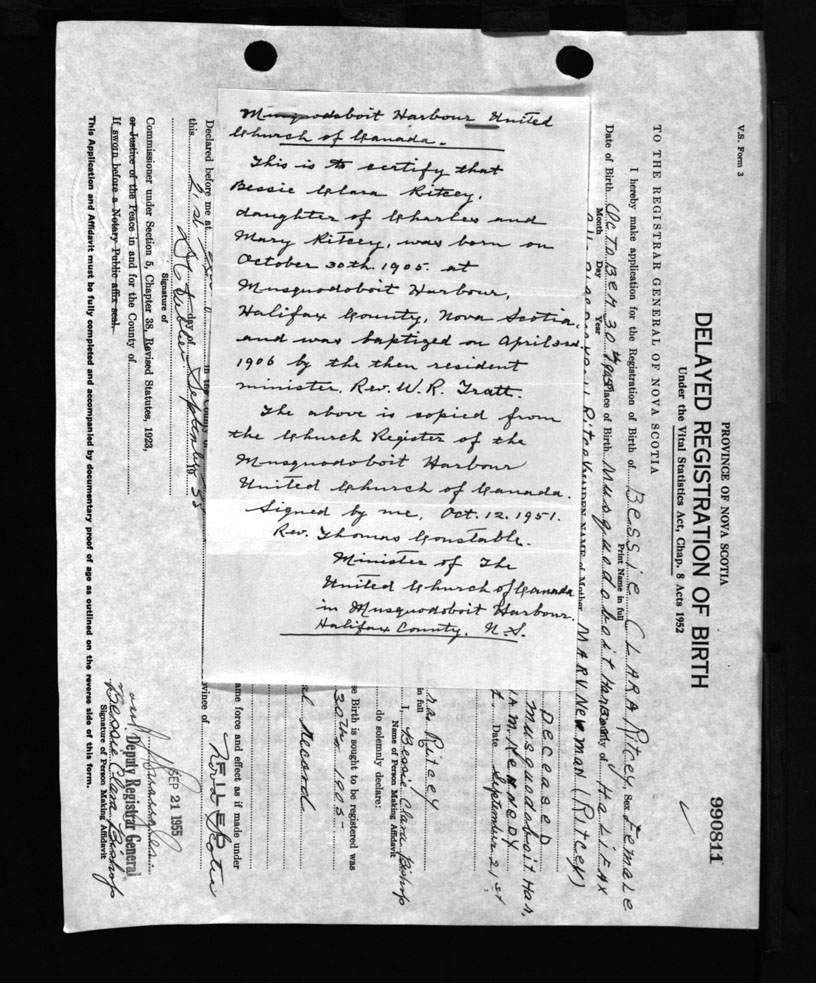 Musquodoboit Harbour United
Church of Canada.
This is to certify that
Bessie Clara Ritcey,
daughter of Charles and
Mary Ritcey, was born on
October 30th 1905. at
Musquodoboit Harbour,
Halifax County, Nova Scotia,
and was baptized on April 3rd
1906 by the then resident
minister, Rev. W. R. Tratt.
The above is copied from
the Church Register of the
Musquodoboit Harbour
United Church of Canada.
Signed by me, Oct. 12. 1951.
Rev. Thomas Constable.
Minister of The
United Church of Canada
in Musquodoboit Harbour.
Halifax County. N.S.
V.S. Form 3
990811
PROVINCE OF NOVA SCOTIA
DELAYED REGISTRATION OF BIRTH
Under the Vital Statistics Act, Chap. 8 Acts 1952
TO THE REGISTRAR GENERAL OF NOVA SCOTIA
I hereby make application for the Registration of Birth of BESSIE CLARA Ritcey Sex Female
Print Name in full
Date of Birth OCTOBER 30th 1905 Place of Birth Musquodoboit Harbour County of HALIFAX
Month Day Year
Ritcey MAIDEN NAME of Mother MARY NewMAN (RITCEY)
DECEASED
Musquodoboit Har,
M. KENNEDY
Date September 21st
Ritcey
in full
I, Bessie Clara Bishop
Name of Person Making Affidavit
do solemnly declare:
se Birth is sought to be registered was
30th 1905-
al Record
ame force and effect as if made under
Declared before me at in the County of vince of Nova Scotia
this 21st day of September 1955
FILED
SEP 21 1955
Deputy Registrar General
Signature of
Commissioner under Section 5, Chapter 38, Revised Statutes, 1923,
or Justice of the Peace in and for the County of
If sworn before a Notary Public affix seal.
Bessie Clara Bishop
Signature of Person Making Affidavit
This Application and Affidavit must be fully completed and accompanied by documentary proof of age as outlined on the reverse side of this form.